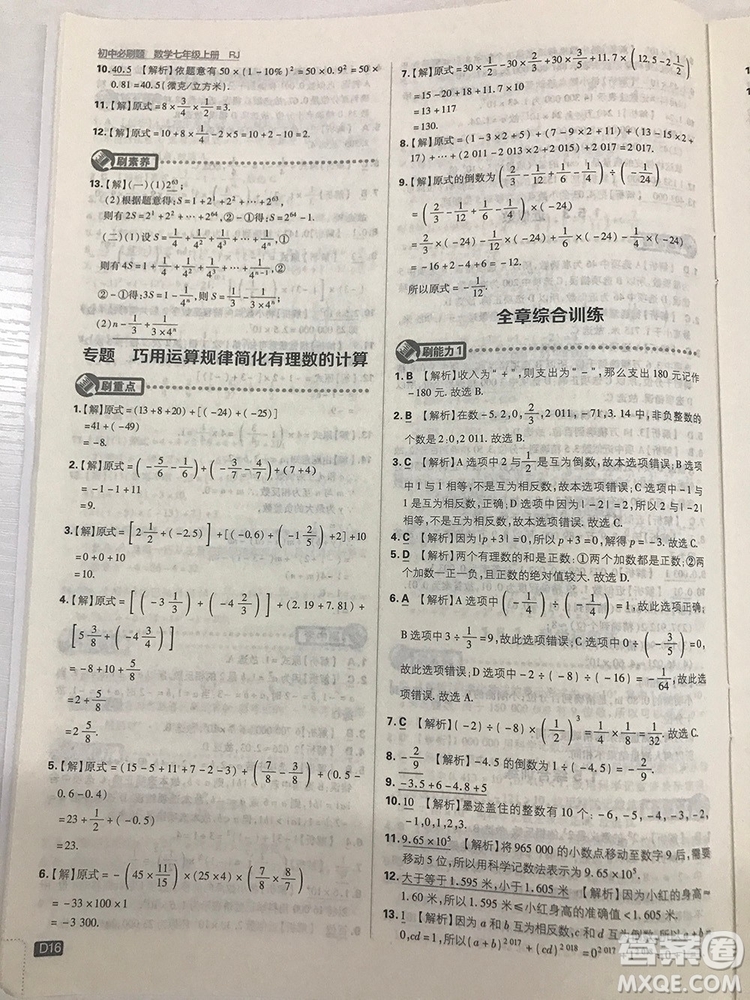 初中必刷题 数学七年级上册 RJ
10. 40.5 【解析】依题意有 50×(1-10%)²=50×0.9²=50×
0.81=40.5(微克/立方米).
11.【解】原式=8×3/4×1/2=3.
12.【解】原式=10+8×1/4-2×5=10+2-10=2.
刷素养
13.【解】(一)(1)2⁶³;
(2)根据题意得:S=1+2¹+2²+…+2⁶³,①
则有 2S=2¹+2²+…+2⁶⁴,②-①得:S=2⁶⁴-1.
(二)(1)设 S=1/4+1/4²+1/4³+…+1/4ⁿ,①
则有 4S=1+1/4+1/4²+…+1/4ⁿ⁻¹,②
②-①得:3S=1-1/4ⁿ,则S=1/3-1/(3×4ⁿ).
(2)n-1/3+1/(3×4ⁿ)
专题 巧用运算规律简化有理数的计算
刷重点
1.【解】原式=(13+8+20)+[(-24)+(-25)]
=41+(-49)
=-8.
2.【解】原式=(-5/6-1/6)+(-3/7-4/7)+(7+4)
=-1-1+11
=9.
3.【解】原式=[2 1/2+(-2.5)]+[(-0.6)+(2/5)+1]+10
=0+0+10
=10.
4.【解】原式=[(-3 1/3)+(-4 2/3)]+(2.19+7.81)+
[5 3/8+(-4 3/4)]
=-8+10+5/8
=2+5/8
=2 5/8.
5.【解】原式=(15-5+11+7-2-3)+(7/8-3/8)+
(0.6-0.4)
=23+1/2+(-0.5)
=23.
6.【解】原式=-(45×11/15)×(25×4)×(7/8×8/7)
=-33×100
=-3 300.
D16
7.【解】原式=30×1/2-30×2/3+30×4/5+(12.5-2 1/2)
=15-20+18+117
=13+117
=130.
8.【解】原式=(1-3×2+5)+(7-9×2+11)+(13-15×2+
17)+…+(2 013-2 015×2+2 017)=0.
9.【解】原式的倒数为(2/3-1/12+1/6-1/4)÷(-1/24)
=(2/3-1/12+1/6-1/4)×(-24)
=2/3×(-24)-1/12×(-24)+1/6×(-24)-1/4×(-24)
=-16+2-4+6=-12,
所以原式=-1/12.
全章综合训练
刷能力1
1. B 【解析】收入为“+”,则支出为“-”,那么支出180元记作
-180元.故选B.
2. B 【解析】在数-5,2,0,2 011,-71,3.14中,非负整数的
个数是:2,0,2 011.故选B.
3. C 【解析】A选项中2与1/2互为倒数,故本选项错误;B选项
中1与1相等,不是互为相反数,故本选项错误;C选项中-1与
1互为相反数,正确;D选项中|-2|=2,则2与|-2|相等,
不是互为相反数,故本选项错误.故选C.
4. C 【解析】因为|p+3|=0,所以p+3=0,解得p=-3.故选C.
5. D 【解析】两个有理数的和是正数:①两个加数都是正数;②两
个加数一正一负,且正数的绝对值较大.故选D.
6. A 【解析】A选项中(-1/4)÷(-1/4)=1,故此选项正确;
B选项中3÷1/3=9,故此选项错误;C选项中0÷3=0,故此
选项错误;D选项中(-1/4)³=-1/64,故此选
项错误.故选A.
7. C 【解析】(-2)÷(-8)×(1/2)³=1/4×1/8=1/32.故选C.
8. -2/9 【解析】-4.5的倒数为1÷(-4.5)=-2/9.
9. -3.5+6-4.8+5
10. 10 【解析】墨迹盖住的整数有10个:
-1,0,1,2,3.
11. 9.65×10⁵ 【解析】将965 000的小数点移动至数字9后,需要
移动5位,所以用科学记数法表示为9.65×10⁵.
12. 大于等于1.595米,小于1.605米 【解析】因为小红的身高约为
1.60米,所以1.595米≤小红身高的准确值<1.605米.
13. 1 【解析】因为a和b互为相反数,c和d互为倒数,所以a+b=0,
cd=1,所以(a+b)²⁰¹⁷+(cd)²⁰¹⁸=0²⁰¹⁷
答案圈
MXQE.COM